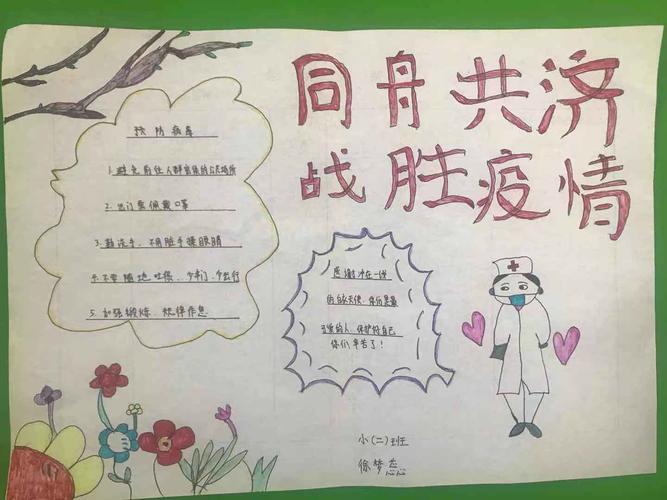 同舟共济
战胜疫情
预防病毒
1.避免前往人群密集的公共场所
2.出门要佩戴口罩
3.勤洗手，不用脏手揉眼睛
4.不要随地吐痰，少串门，少出行
5.加强锻炼，规律作息
感谢冲在一线
的白衣天使，你们是最
可爱的人，保护好自己
你们辛苦了！
小(二)班
徐梦